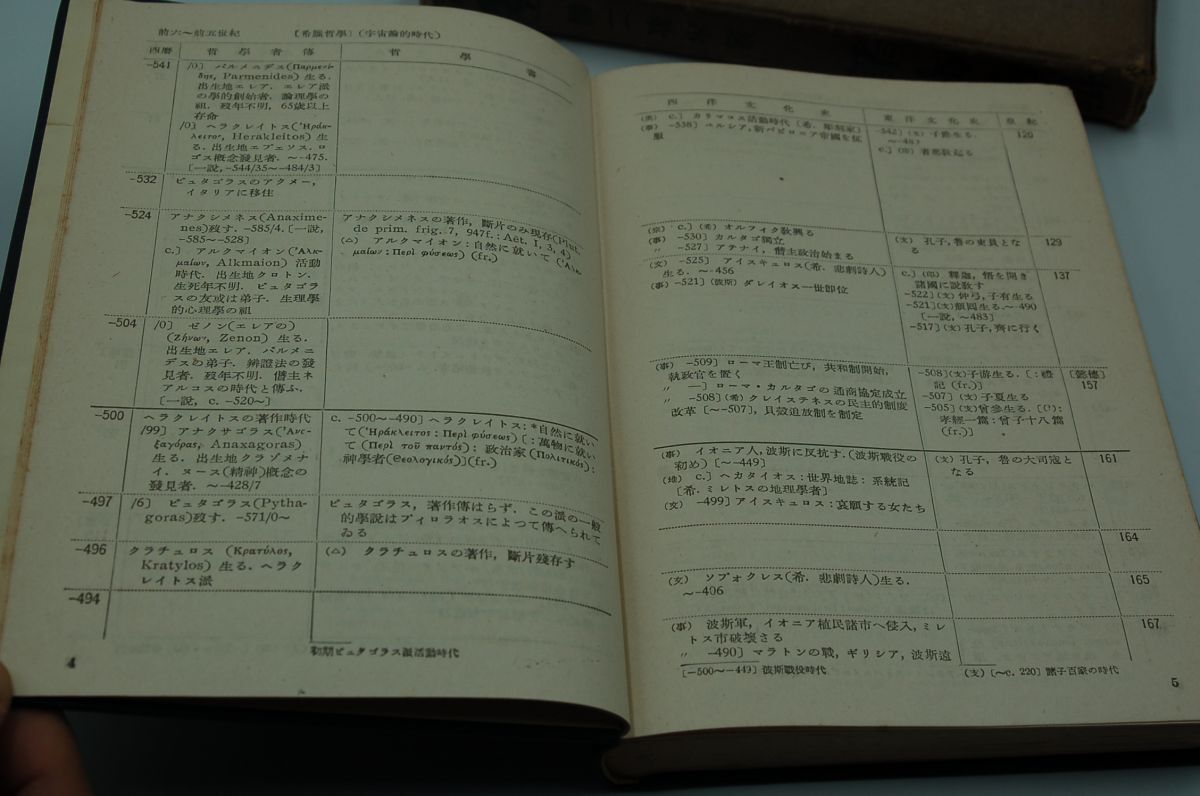 前六〜前五世紀 〔希臘哲學〕(宇宙論的時代)
西曆 哲學者傳 哲學書
-541 /0] パルメニデス(Παρμενί-
δης, Parmenides) 生る.
出生地エレア. エレア派
の學的創始者. 論理學の
祖. 歿年不明, 65歲以上
存命
/0] ヘラクレイトス('Ηρά-
κλειτος, Herakleitos) 生
る. 出生地エプェソス. ロ
ゴス概念發見者. 〜-475.
[一說, -544/35〜-484/3]
-532 ピュタゴラスのアクメー,
イタリアに移住
-524 アナクシメネス(Anaxime-
nes)歿す. -585/4. [一說,
-585〜-528]
c.] アルクマイオン('Αλκ-
μαίων, Alkmaion) 活動
時代. 出生地クロトン.
生死年不明. ピュタゴラ
スの友或は弟子. 生理學
的心理學の祖
アナクシメネスの著作, 斷片のみ現存(Plut.
de prim. frig. 7, 947f.: Aët. I, 3, 4)
(△) アルクマイオン: 自然に就いて ('Αλκ-
μαίων: Περὶ φύσεως) (fr.)
-504 /0] ゼノン(エレアの)
(Ζήνων, Zenon) 生る.
出生地エレア. パルメニ
デスの弟子. 辨證法の發
見者. 歿年不明. 僭主ネ
アルコスの時代と傳ふ.
[一說, c. -520〜]
-500 ヘラクレイトスの著作時代
/99] アナクサゴラス('Ανα-
ξαγόρας, Anaxagoras)
生る. 出生地クラゾメナ
イ. ヌース(精神)概念の
發見者. 〜-428/7
c. -500〜-490] ヘラクレイトス: *自然に就い
て('Ηράκλειτος: Περὶ φύσεως) [: 萬物に就い
て (Περὶ τοῦ παντός): 政治家 (Πολιτικός):
神學者(Θεολογικός)](fr.)
-497 /6] ピュタゴラス(Pytha-
goras)歿す. -571/0〜
ピュタゴラス, 著作傳はらず. この派の一般
的學說はプィロラオスによつて傳へられて
ゐる
-496 クラチュロス (Κρατύλος,
Kratylos) 生る. ヘラク
レイトス派
(△) クラチュロスの著作, 斷片殘存す
-494
初期ピュタゴラス派活動時代
4
西洋文化史 東洋文化史 皇紀
(美) c.] カリマコス活動時代 (希. 彫刻家)
(事) -538] ペルシア, 新バビロニア帝國を征
服
-542] (支) 子爵生る.
〜-48?
c.] (印) 耆那敎起る
120
(宗) c.] (希) オルフィク敎興る
(事) -530] カルタゴ獨立
〃 -527] アテナイ, 僭主政治始まる
(支) 孔子, 魯の吏員とな
る
129
(文) -525] アイスキュロス(希. 悲劇詩人)
生る. 〜-456
(事) -521] (波斯) ダレイオス一世卽位
c.] (印) 釋迦, 悟を開き
諸國に說敎す
-522] (支) 仲弓, 子有生る
-521] (支) 顏囘生る. 〜-490
[一說, 〜-483]
-517] (支) 孔子, 齊に行く
137
(事) -509] ローマ王制亡び, 共和制開始,
執政官を置く
〃 —] ローマ・カルタゴの通商協定成立
〃 -508] (希) クレイステネスの民主的制度
改革 [〜-507], 貝殼追放制を制定
-508] (支) 子游生る. [: 禮
記 (fr.)]
-507] (支) 子夏生る
-505] (支) 曾參生る. [(?):
孝經一篇: 曾子十八篇
(fr.)]
[懿德]
157
(事) イオニア人, 波斯に反抗す. (波斯戰役の
初め) [〜-449]
(地) c.] ヘカタイオス: 世界地誌: 系統記
[希. ミレトスの地理學者]
(文) -499] アイスキュロス: 哀願する女たち
(支) 孔子, 魯の大司寇と
なる
161
164
(文) ソプォクレス(希. 悲劇詩人)生る.
〜-406
165
(事) 波斯軍, イオニア植民諸市へ侵入, ミレ
トス市破壞さる
〃 -490] マラトンの戰, ギリシア, 波斯遠
167
[-500〜-449] 波斯戰役時代
(支) [〜c. 220] 諸子百家の時代
5